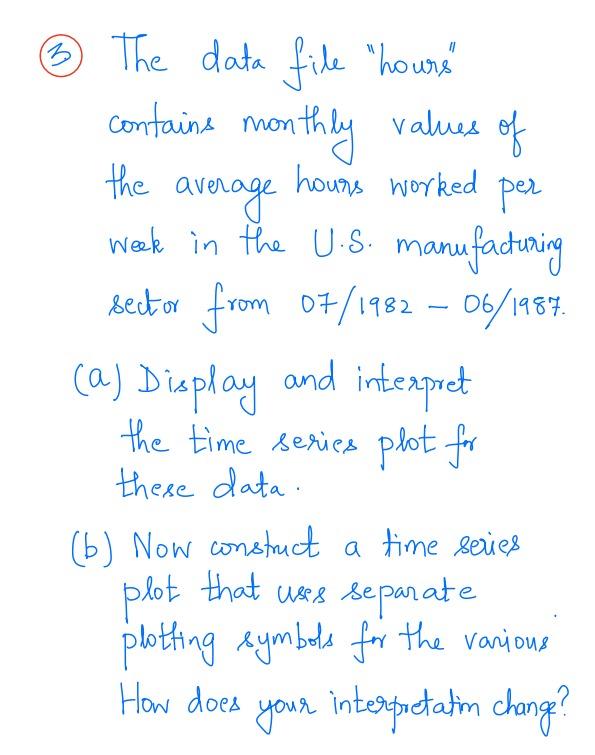 3 The data file "hours"
contains monthly values of
the average hours worked per
week in the U.S. manufacturing
sector from 07/1982 – 06/1987.
(a) Display and interpret
the time series plot for
these data.
(b) Now construct a time series
plot that uses separate
plotting symbols for the various
How does your interpretation change?